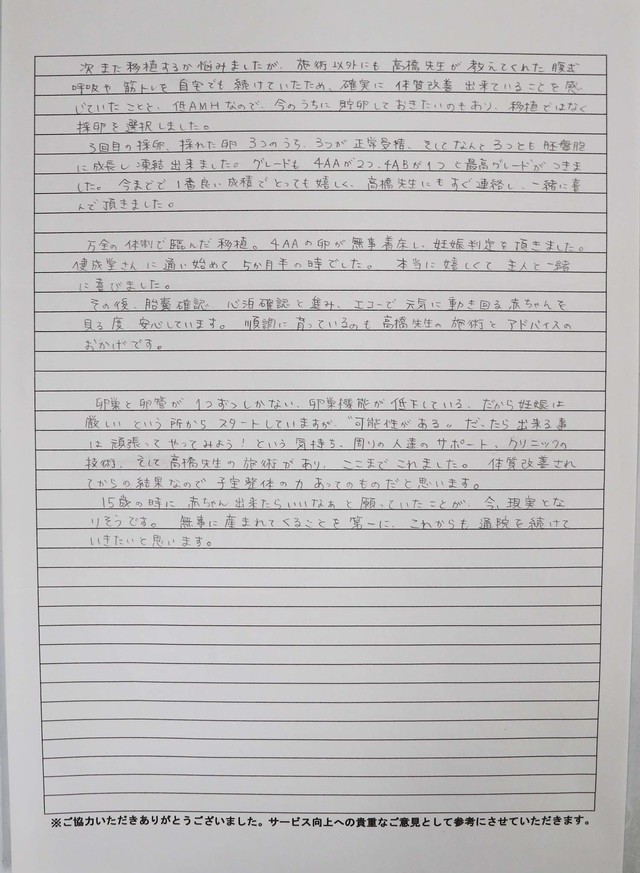 次また移植するか悩みましたが、施術以外にも高橋先生が教えてくれた腹式
呼吸や筋トレを自宅でも続けていたため、確実に体質改善出来ていることを感
じていたことと、低AMHなので、今のうちに貯卵しておきたいのもあり、移植ではなく
採卵を選択しました。
3回目の採卵、採れた卵3つのうち、3つが正常受精、そしてなんと3つとも胚盤胞
に成長し凍結出来ました。グレードも4AAが2つ、4ABが1つと最高グレードがつきま
した。今までで1番良い成績でとっても嬉しく、高橋先生にもすぐ連絡し、一緒に喜
んで頂きました。
万全の体制で臨んだ移植。4AAの卵が無事着床し、妊娠判定を頂きました。
健成堂さんに通い始めて5か月半の時でした。本当に嬉しくて主人と一緒
に喜びました。
その後、胎嚢確認、心拍確認と進み、エコーで元気に動き回る赤ちゃんを
見る度、安心しています。順調に育っているのも高橋先生の施術とアドバイスの
おかげです。
卵巣と卵管が1つずつしかない、卵巣機能が低下している、だから妊娠は
厳しいという所からスタートしていますが、"可能性がある"だったら出来る事
は頑張ってやってみよう!という気持ち、周りの人達のサポート、クリニックの
技術、そして高橋先生の施術があり、ここまでこれました。体質改善され
てからの結果なので子宝整体の力あってのものだと思います。
15歳の時に赤ちゃん出来たらいいなぁと願っていたことが、今、現実とな
りそうです。無事に産まれてくることを第一に、これからも通院を続けて
いきたいと思います。
※ご協力いただきありがとうございました。サービス向上への貴重なご意見として参考にさせていただきます。